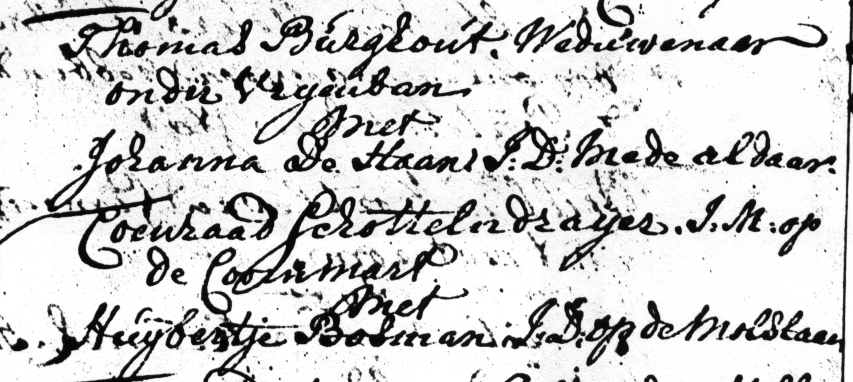 Thomas Burghout. Weduwenaar
onder Vryenban.
Met
Johanna de Haan, J: D: Mede aldaar.
Coenraad Schottelndraijer. J: M: op
de Coornmart
Met
Huijbertje Bosman. J: D: op de Molslaan